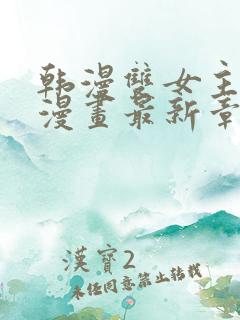 韩漫雙女主
漫畫最新章
漢寶2
未经同意禁止转载